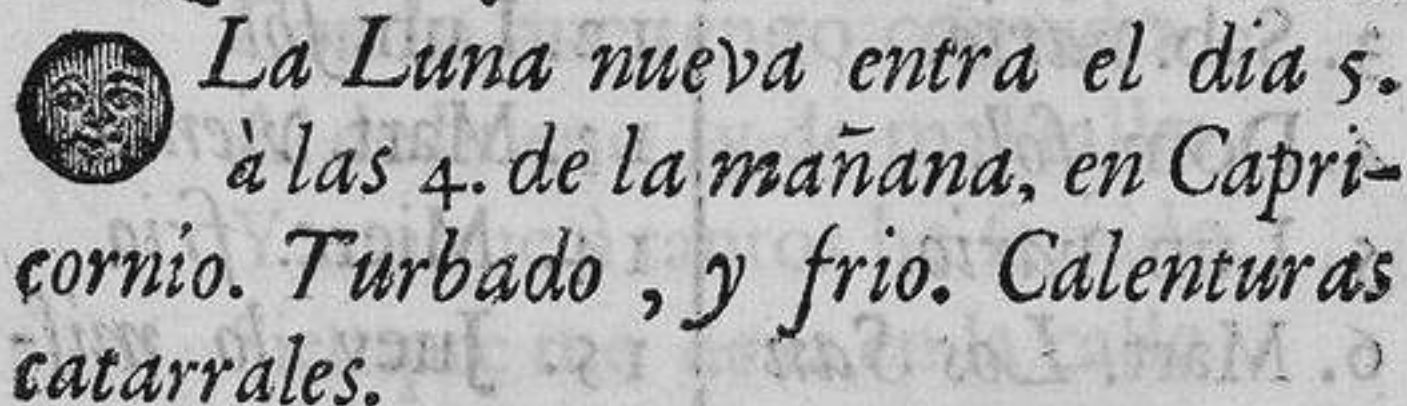 La Luna nueva entra el dia 5.
à las 4. de la mañana, en Capri-
cornio. Turbado, y frio. Calenturas
catarrales.